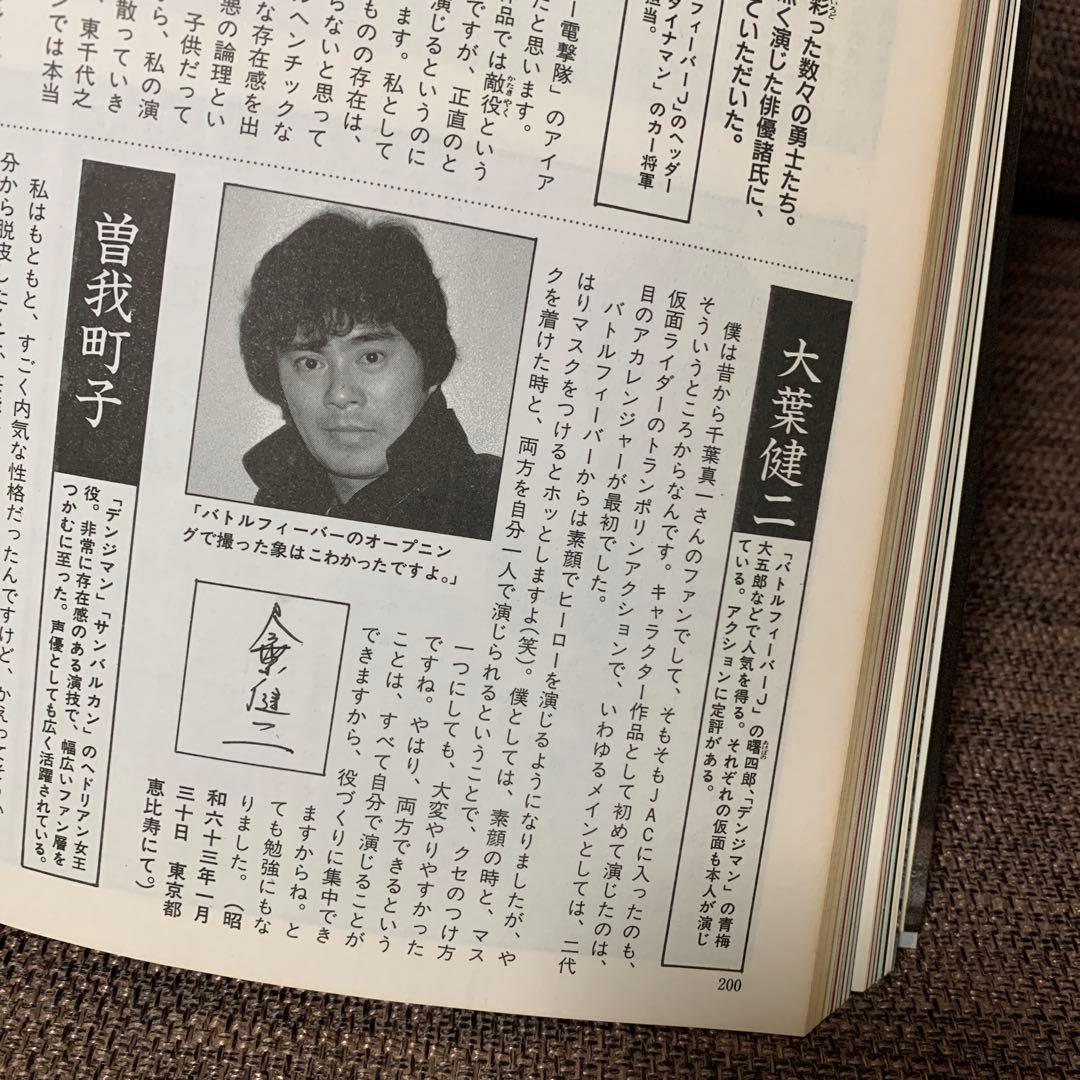 彩った数々の勇士たち。
く演じた俳優諸氏に、
ていただいた。
フィーバーJ」のヘッダー
ダイナマン」のカー将軍
担当。
電撃隊」のアイア
たと思います。
作品では敵役という
ですが、正直のと
演じるというのに
ます。私として
ものの存在は、
らないと思って
ルヘンチックな
な存在感を出
悪の論理とい
子供だって
ら、私の演
散っていき
、東千代之
ンでは本当
大葉健二
「バトルフィーバーJ」の曙四郎、「デンジマン」の青梅
大五郎などで人気を得る。それぞれの仮面も本人が演じ
ている。アクションに定評がある。
僕は昔から千葉真一さんのファンでして、そもそもJACに入ったのも、
そういうところからなんです。キャラクター作品として初めて演じたのは、
仮面ライダーのトランポリンアクションで、いわゆるメインとしては、二代
目のアカレンジャーが最初でした。
バトルフィーバーからは素顔でヒーローを演じるようになりましたが、や
はりマスクをつけるとホッとしますよ(笑)。僕としては、素顔の時と、マス
クを着けた時と、両方を自分一人で演じられるということで、クセのつけ方
一つにしても、大変やりやすかった
ですね。やはり、両方できるという
ことは、すべて自分で演じることが
できますから、役づくりに集中でき
ますからね。と
ても勉強にもな
りました。（昭
和六十三年一月
三十日　東京都
恵比寿にて。）
「バトルフィーバーのオープニン
グで撮った象はこわかったですよ。」
大葉健二
曽我町子
「デンジマン」「サンバルカン」のヘドリアン女王
役。非常に存在感のある演技で、幅広いファン層を
つかむに至った。声優としても広く活躍されている。
私はもともと、すごく内気な性格だったんですけど、
分から脱皮し
200